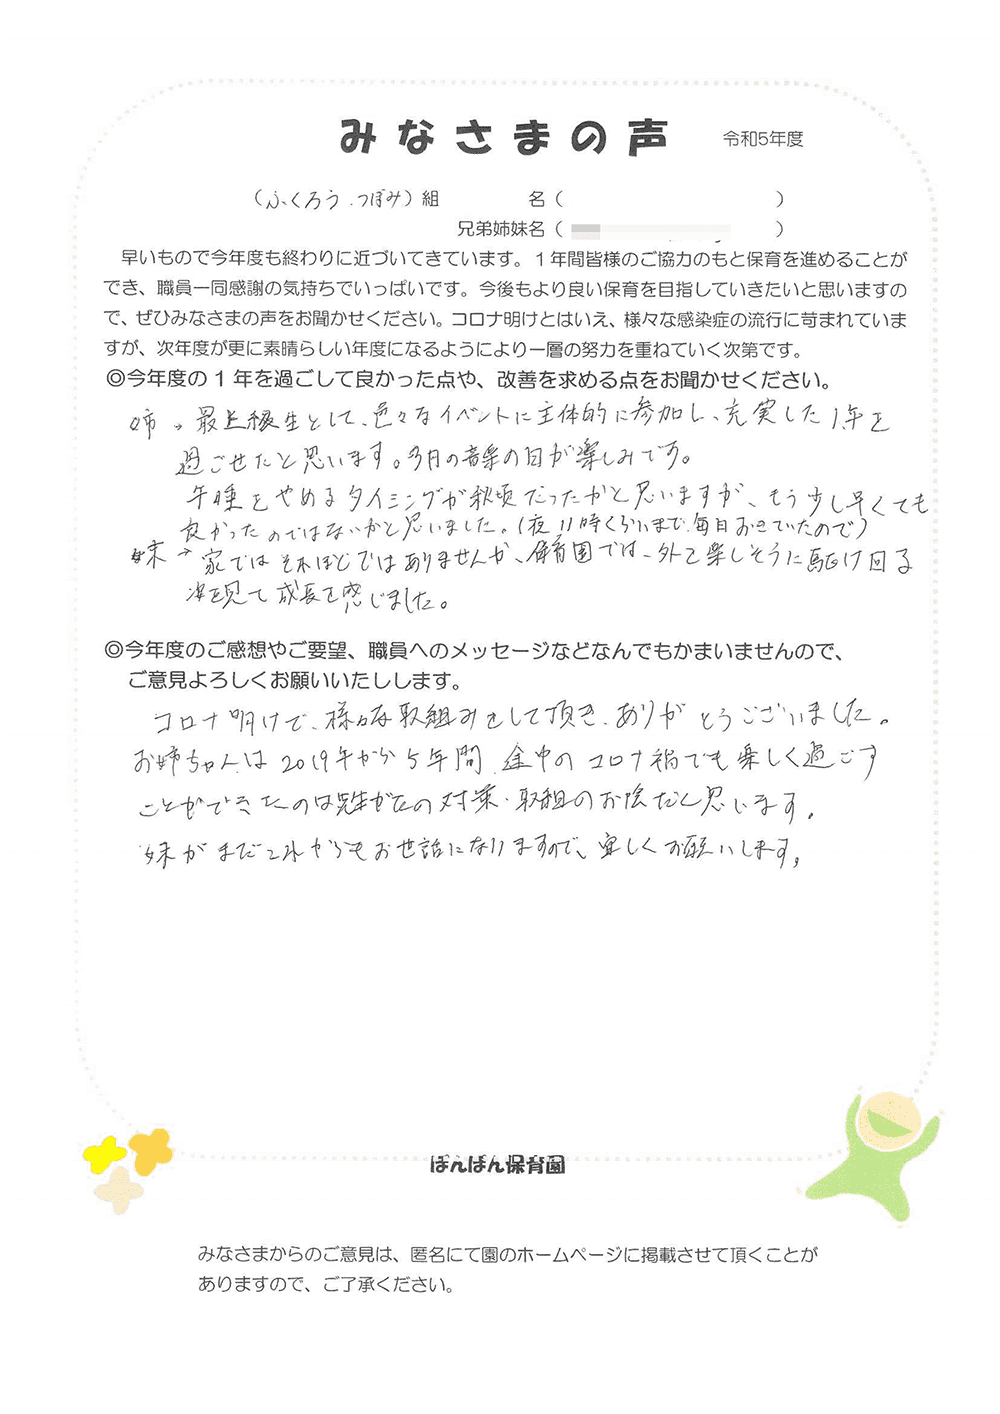 みなさまの声 令和5年度
(ふくろう.つぼみ)組 名( )
兄弟姉妹名( )
早いもので今年度も終わりに近づいてきています。1年間皆様のご協力のもと保育を進めることが
でき、職員一同感謝の気持ちでいっぱいです。今後もより良い保育を目指していきたいと思いますの
で、ぜひみなさまの声をお聞かせください。コロナ明けとはいえ、様々な感染症の流行に苛まれていま
すが、次年度が更に素晴らしい年度になるようにより一層の努力を重ねていく次第です。
◎今年度の1年を過ごして良かった点や、改善を求める点をお聞かせください。
姉→最上級生として、色々なイベントに主体的に参加し、充実した1年を
過ごせたと思います。3月の音楽の日が楽しみです。
午睡をやめるタイミングが秋頃だったかと思いますが、もう少し早くても
良かったのではないかと思いました。(夜11時くらいまで毎日おきていたので)
妹→家ではそれほどではありませんが、保育園では、外で楽しそうに駆け回る
姿を見て成長を感じました。
◎今年度のご感想やご要望、職員へのメッセージなどなんでもかまいませんので、
ご意見よろしくお願いいたしします。
コロナ明けで、様々な取組みをして頂き、ありがとうございました。
お姉ちゃんは2019年から5年間、途中のコロナ禍でも楽しく過ごす
ことができたのは先生がたの対策・取組のお陰だと思います。
妹がまだこれからもお世話になりますので、宜しくお願いします。
ぽんぽん保育園
みなさまからのご意見は、匿名にて園のホームページに掲載させて頂くことが
ありますので、ご了承ください。